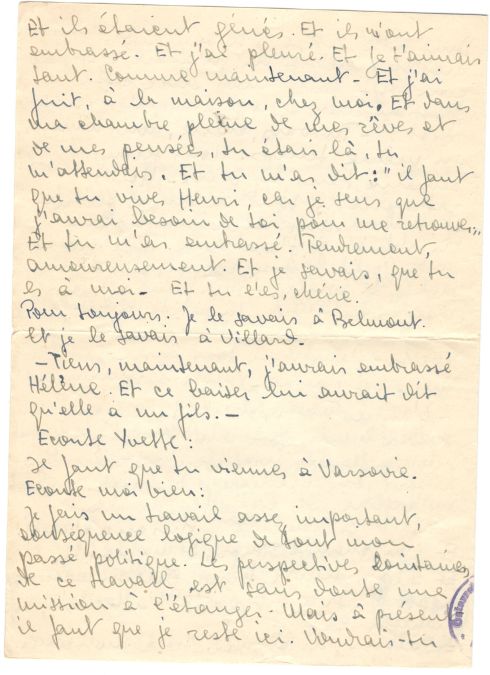 Et ils étaient gênés. Et ils m'ont
embrassé. Et j'ai pleuré. Et je t'aimais
tant. Comme maintenant - Et j'ai
fuit, à la maison, chez moi. Et dans
ma chambre pleine de mes rêves et
de mes pensées, tu étais là, tu
m'attendais. Et tu m'as dit: "il faut
que tu vives Henri, car je sens que
j'aurai besoin de toi pour me retrouver"
Et tu m'as embrassé. Tendrement,
amoureusement. Et je savais, que tu
es à moi - Et tu l'es, chérie.
Pour toujours. Je le savais à Belmont.
Et je le savais à Villard.
- Tiens, maintenant, j'aurais embrassé
Hélène. Et ce baiser lui aurait dit
qu'elle a un fils. -
Ecoute Yvette:
Je faut que tu viennes à Varsovie.
Ecoute moi bien:
Je fais un travail assez important,
conséquence logique de tout mon
passé politique. Les perspectives lointaines
de ce travail est sans doute une
mission à l'étranger - Mais à présent
il faut que je reste ici. Voudrais-tu